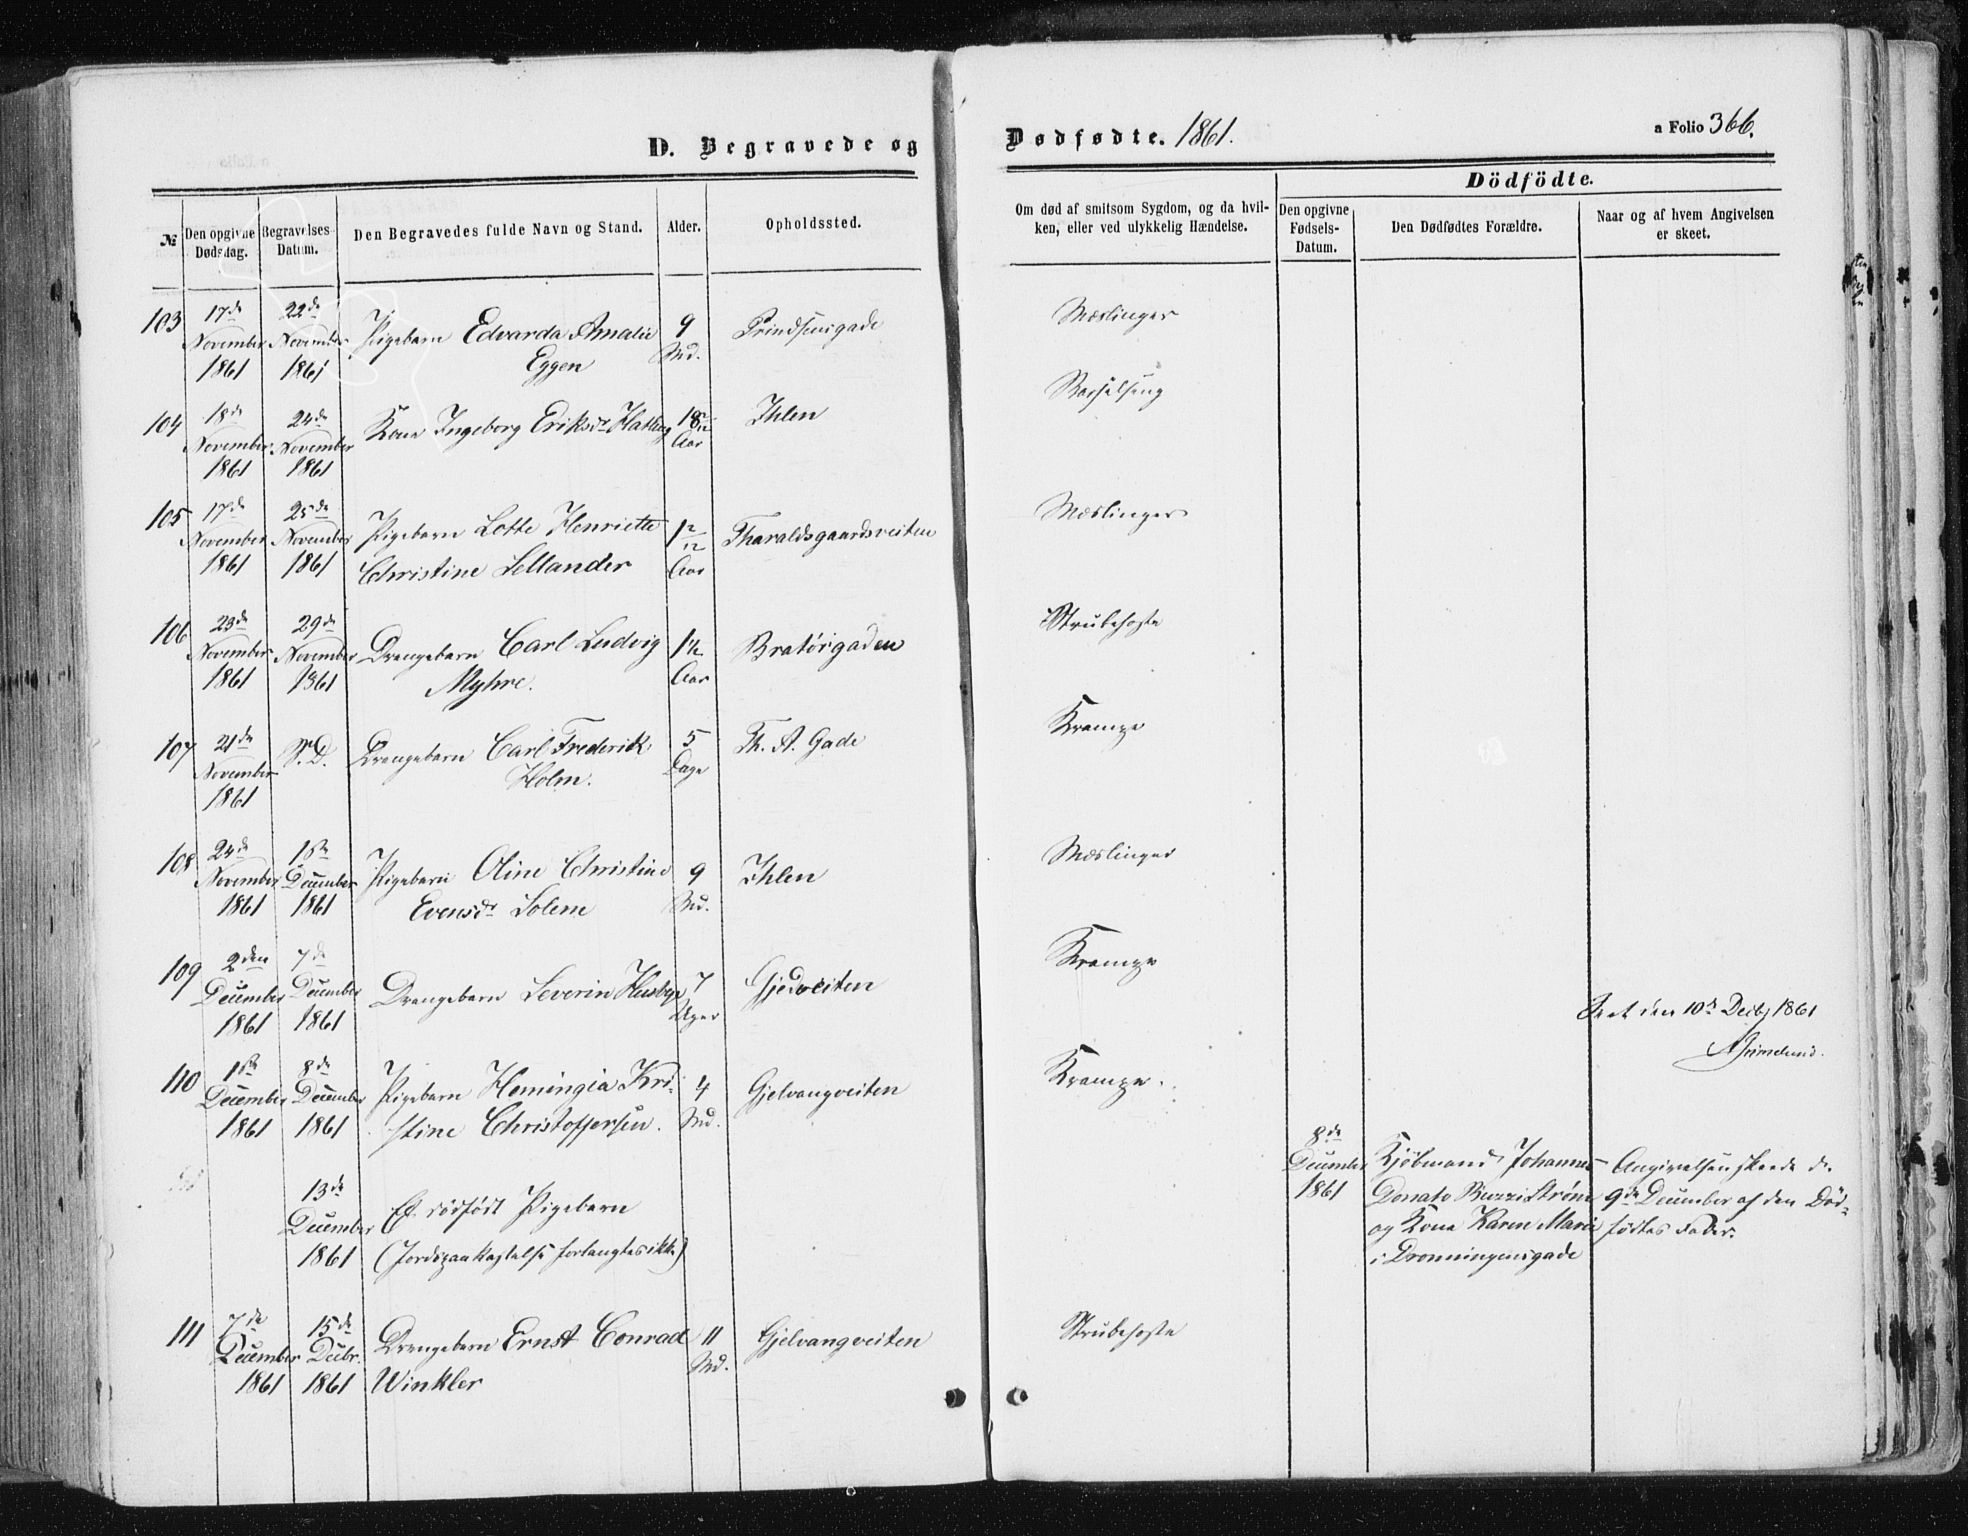 D. Begravede og Dødfødte. 1861.
a Folio 366.
Dödfödte.
№
Den opgivne Dødsdag.
Begravelses-Datum.
Den Begravedes fulde Navn og Stand.
Alder.
Opholdssted.
Om død af smitsom Sygdom, og da hvil-
ken, eller ved ulykkelig Hændelse.
Den opgivne Fødsels-Datum.
Den Dødfødtes Forældre.
Naar og af hvem Angivelsen
er skeet.
103 17de 22de Pigebarn Edvarda Amalie 9 Prindsensgade Mæslinger
November November Eggen Md.
1861 1861
104 18de 24de Kone Ingeborg Eriksdr Ihlen Barselseng
November November Aar
1861 1861
105 17de 25de Pigebarn Lotte Henriette 1 2/12 Tharaldsgaardsveiten Mæslinger
November November Christine Sellander Aar
1861 1861
106 23de 29de Drengebarn Carl Ludvig 1½ Bratørgaden Strubehoste
November November Myhre. Aar
1861 1861
107 21de S. D. Drengebarn Carl Frederik 5 Th. A. Gade Krampe
November Holm. Dage
1861
108 24de 1ste Pigebarn Oline Christine 9 Ihlen Mæslinger
November December Evensdr Solem Md.
1861 1861
109 2den 7de Drengebarn Severin Husbye 7 Gjedveiten Krampe
December December Uger
1861 1861
den 10de Decbr 1861
Grimelund.
110 1ste 8de Pigebarn Hemingia Kri- 4 Gjelvangveiten Krampe.
December December stine Christoffersen. Md.
1861 1861
13de Et dødfødt Pigebarn
December (Jordspaakastelse forlangtes ikke)
1861
8de Kjøbmand Johannes Angivelsen skeede d.
December Donato Buzzi Strøm 9de December af den Død-
1861 og Kone Karen Marie fødtes Fader.
i Dronningensgade
111 7de 15de Drengebarn Ernst Conrad 11 Gjelvangveiten Strubehoste
December Decbr. Winkler Md.
1861 1861